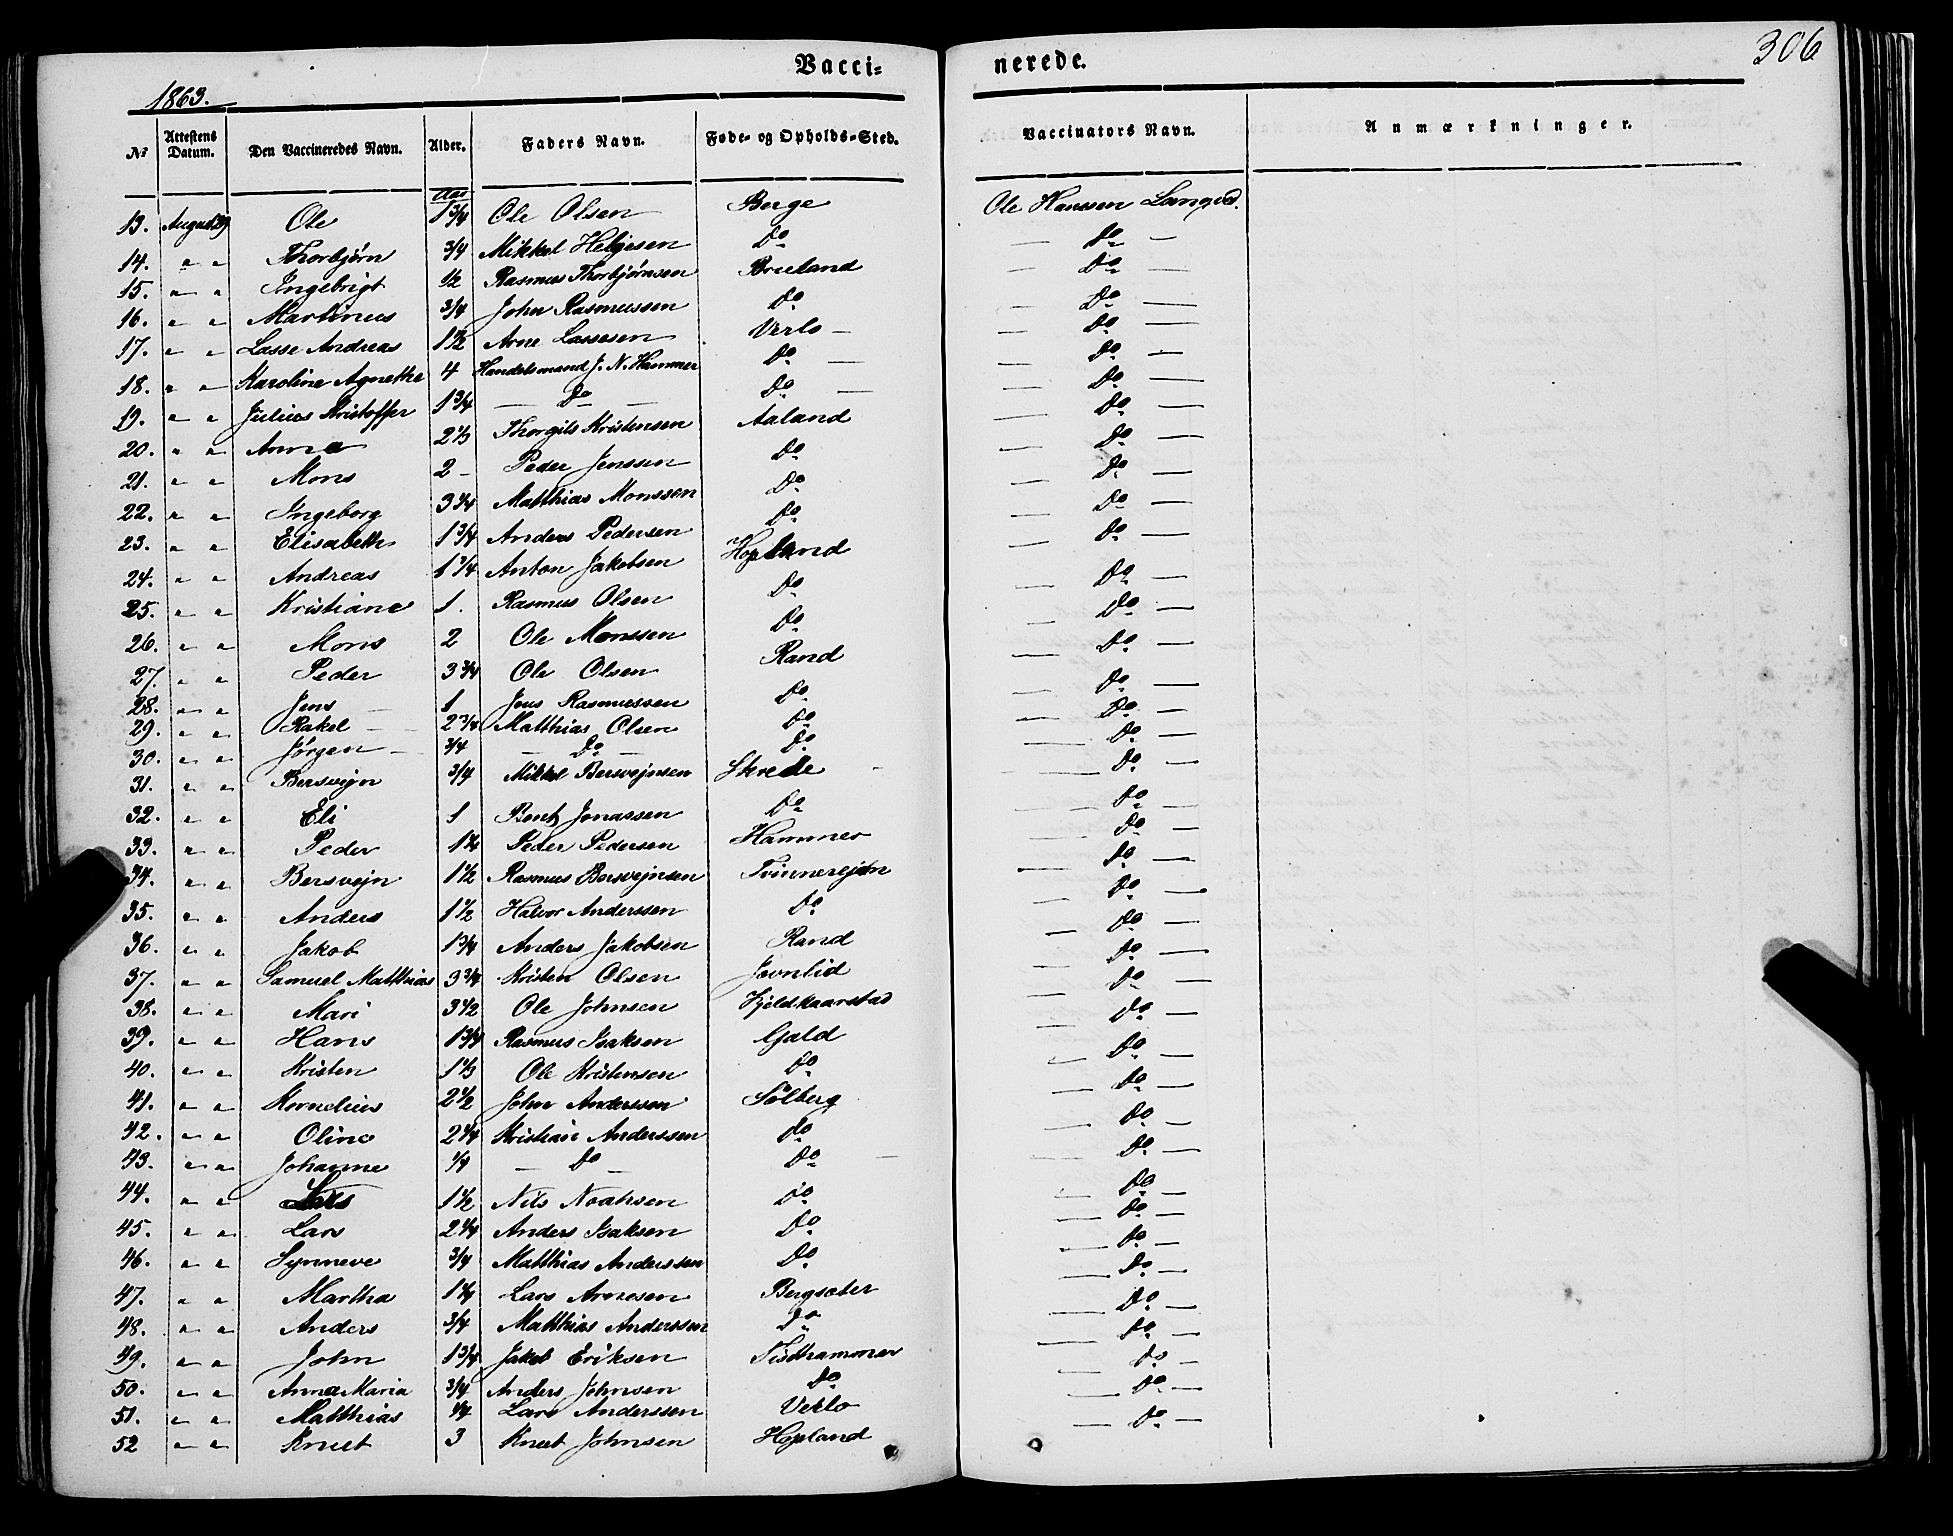 306
Vacci= nerede.
1863.
No Attestens Datum. Den Vaccineredes Navn. Alder. Faders Navn. Føde- og Opholds-Sted. Vaccinators Navn. Anmærkninger.
Aar
13. August 29 Ole 1 3/4 Ole Olsen Berge Ole Hanssen
14. " " Thorbjørn 3/4 Mikkel Helgesen Do — Do —
15. " " Ingebrigt 1/2 Rasmus Thorbjørnsen — Do —
16. " " Martinus 3/4 John Rasmussen Do — Do —
17. " " Lasse Andreas 1 1/2 Arne Lassesen Verlo — — Do —
18. " " Karoline Agnethe 4 Handelsmand J. N. Hammer Do — — Do —
19. " " Julius Kristoffer 1 3/4 — Do — Do — — Do —
20. " " Anna 2 1/3 Thorgils Kristensen Aaland — Do —
21. " " Mons 2 - Peder Jenssen Do — Do —
22. " " Ingeborg 3 3/4 Matthias Monssen Do — Do —
23. " " Elisabeth 1 3/4 Anders Pedersen Do — Do —
24. " " Andreas Anton Jakobsen Hopland — Do —
25. " " Kristiane 1. Rasmus Olsen Do — Do —
26. " " Mons 2 Ole Monssen Do — Do —
27. " " Peder 3 3/4 Ole Olsen Rand — Do —
28. " " Jens 1 Jens Rasmussen Do — Do —
29. " " Rakel — 2 3/4 Matthias Olsen Do — Do —
30. " " Jørgen — 3/4 — Do — Do — Do —
31. " " Bersvejn 3/4 Mikkel Bersvejnsen Skrede — Do —
32. " " Eli 1 Bent Jonassen Do — Do —
33. " " Peder Peder Pedersen Hammer — Do —
34. " " Bersvejn 1 1/2 Rasmus Bersvejnsen — Do —
35. " " Anders 1 1/2 Halvor Anderssen Do — Do —
36. " " Jakob 1 3/4 Anders Jakobsen Rand — Do —
37. " " Samuel Matthias 3 3/4 Kristen Olsen — Do —
38. " " Mari 3 1/2 Ole Johnsen Hjeldkaarstad — Do —
39. " " Hans 1 3/4 Rasmus Isaksen Gjald — Do —
40. " " Kristen 1 1/3 Ole Kristensen Do — Do —
41. " " Kornelius 2 1/2 John Anderssen Sølberg — Do —
42. " " Oline 2 1/4 Kristian Anderssen do — Do —
43. " " Johanne 1/4 — Do — Do — — Do —
44. " " Lars 1 1/2 Nils Noahsen Do — Do —
45. " " Lars 2 1/4 Anders Isaksen Do — Do —
46. " " Synneve 3/4 Matthias Anderssen Do — Do —
47. " " Martha 1 1/4 Lars Arnesen Bergsæter — Do —
48. " " Anders 3/4 Matthias Anderssen Do — Do —
49. " " John 1 3/4 Jakob Eriksen Tisthammer — Do —
50. " " Anna Maria 3/4 Anders Johnsen Do — Do —
51. " " Matthias 1/4 Lars Anderssen Verlo — Do —
52 " " Knut 3 Knut Johnsen Hopland — Do —